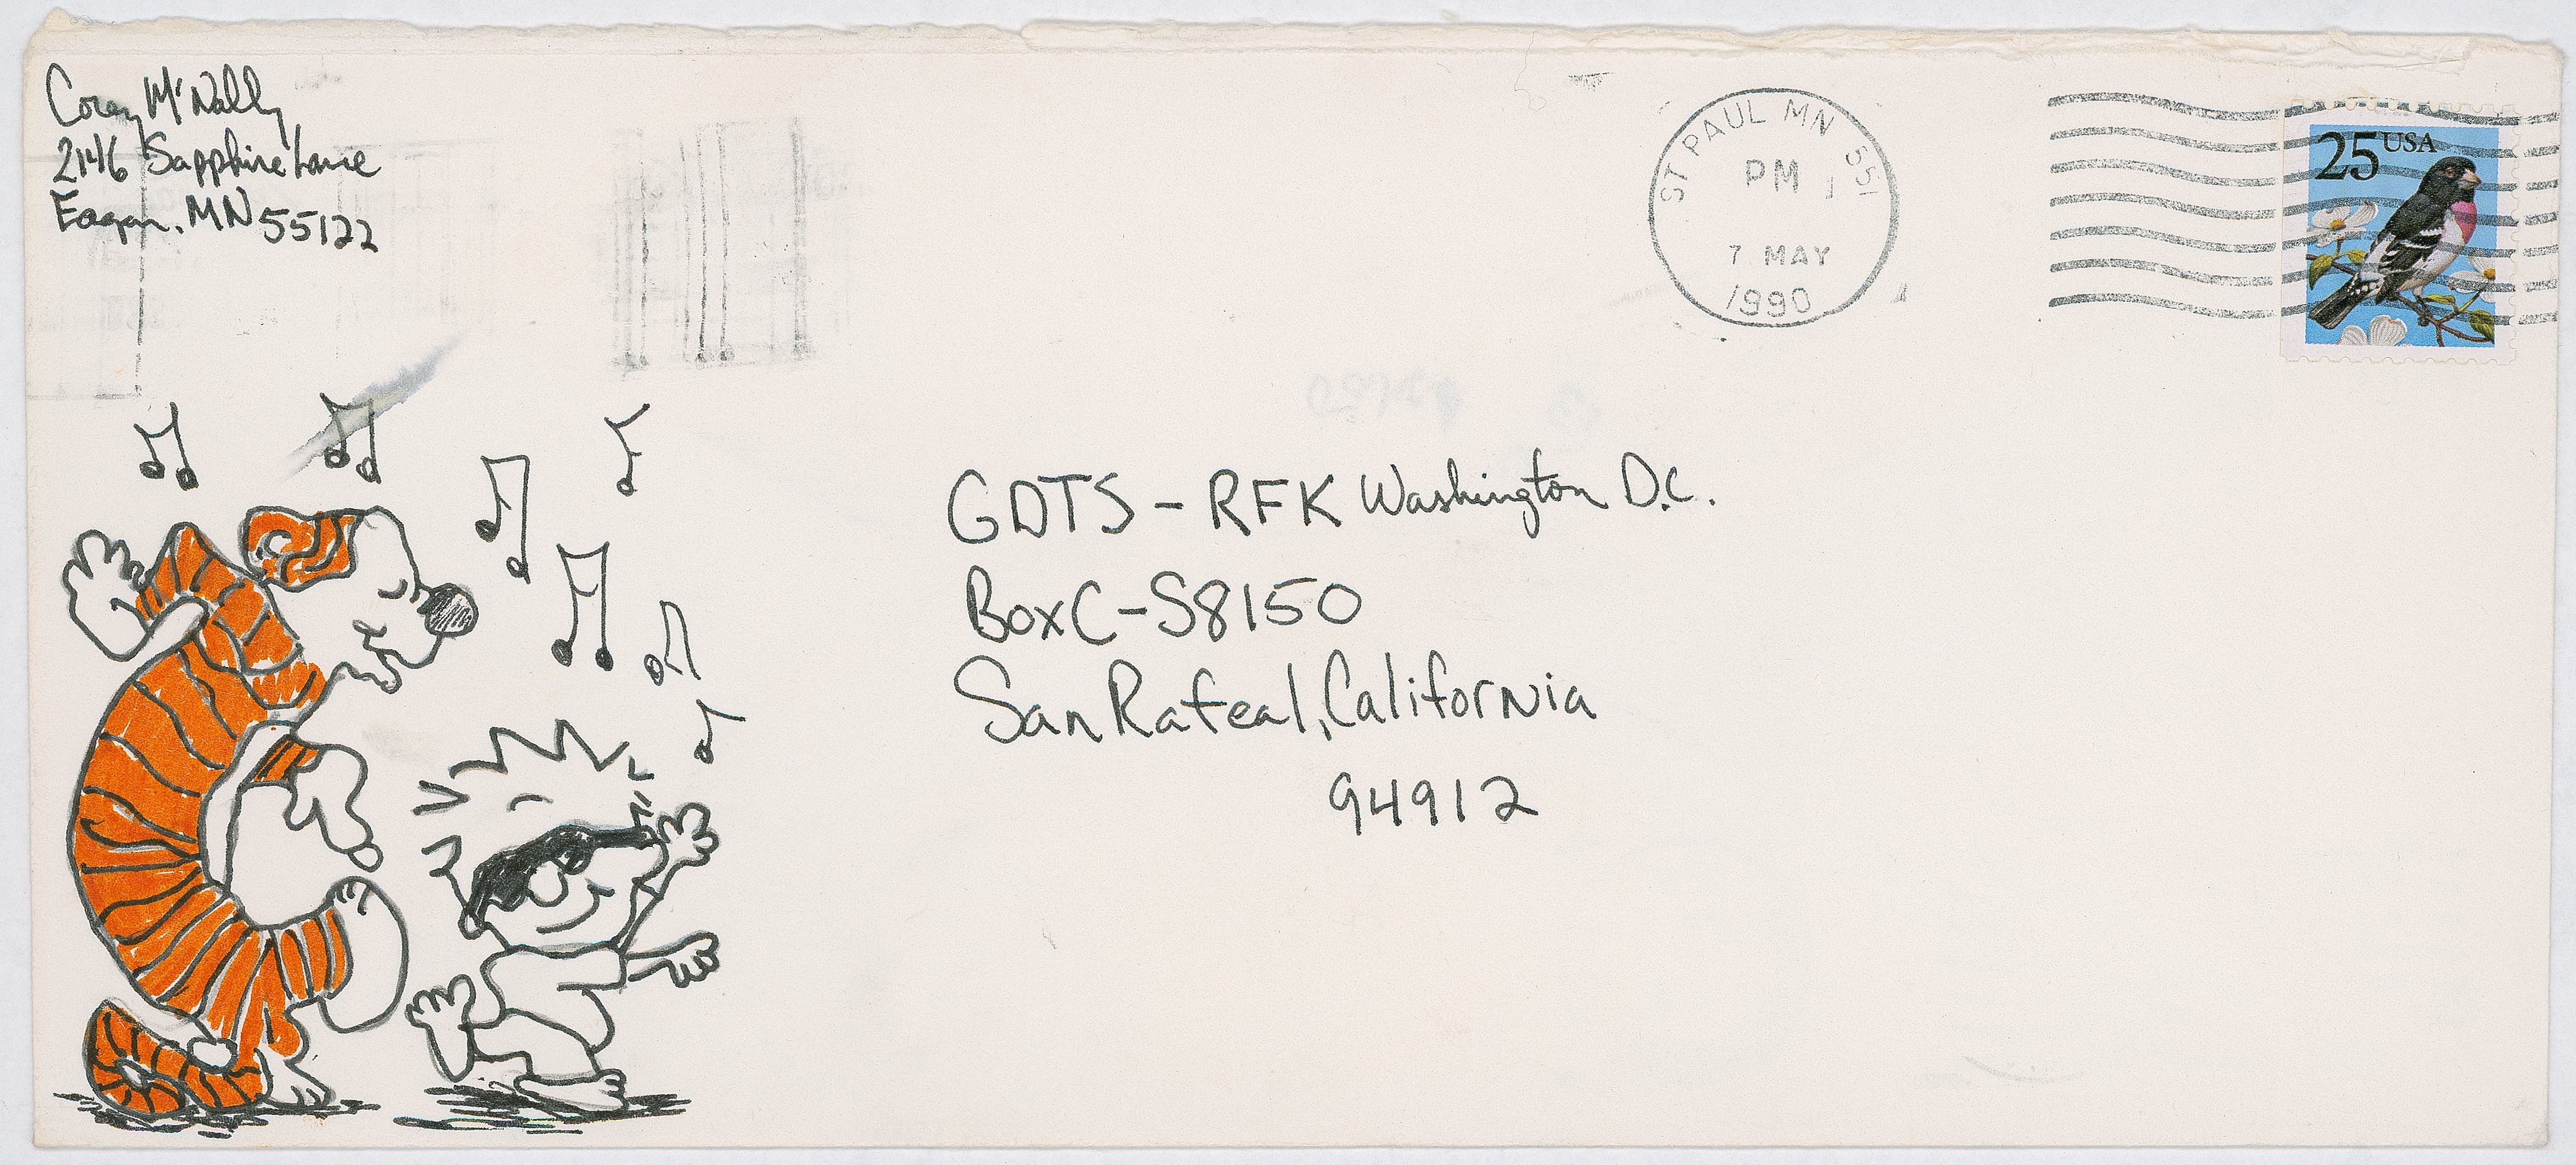 Corey McNally
2146 Sapphire Lane
Eagan, MN 55122
ST PAUL MN 551
PM
7 MAY
1990
25 USA
GDTS - RFK Washington D.C.
Box C-S8150
San Rafeal, California
94912